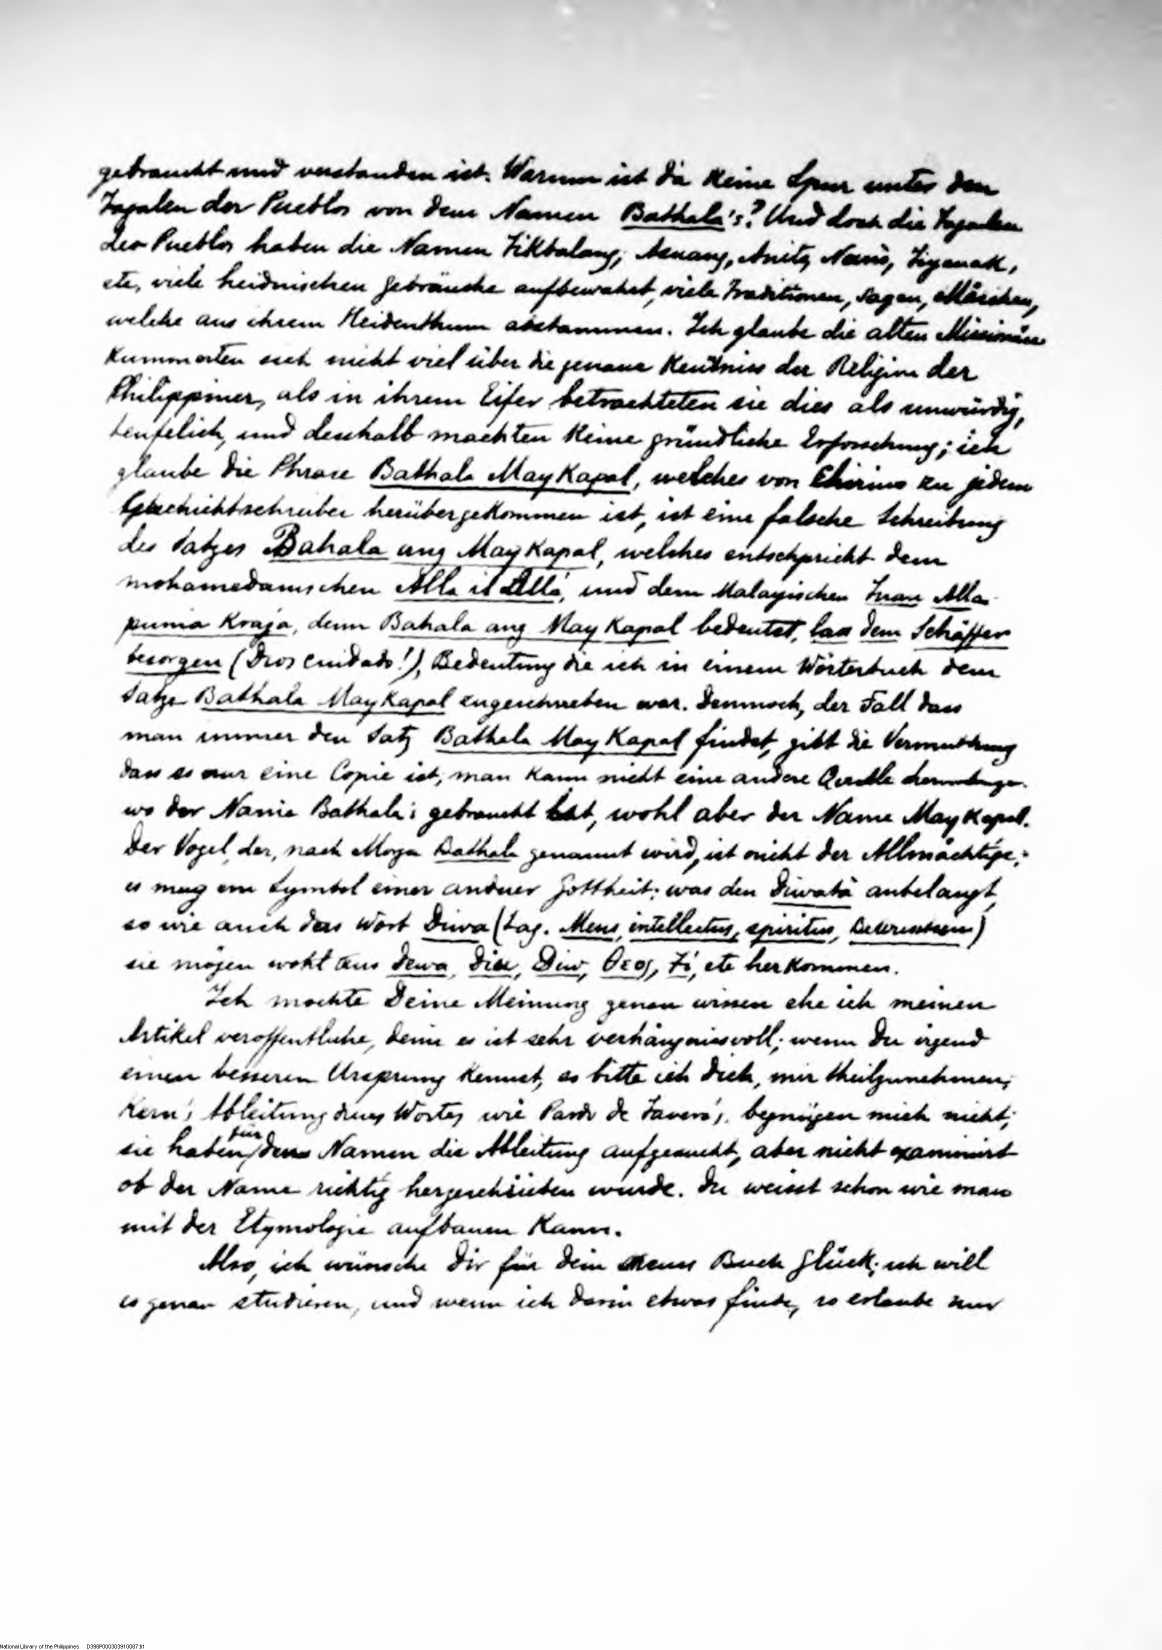 gebraucht und verstanden ist. Warum ist da keine Spur unter den
Tagalen der Pueblos von dem Namen Bathala's? Und doch die Tagalen
der Pueblos haben die Namen Tikbalang, Asuang, Anito, Nunò, Tiyanak,
etc, viele heidnischen Gebräuche aufbewahrt, viele Traditionen, Sagen, Märchen,
welche aus ihrem Heidenthum abstammen. Ich glaube die alten Missionäre
kummerten sich nicht viel über die genaue Kentniss der Religion der
Philippiner, als in ihrem Eifer betrachteten sie dies als unwürdig,
teufelich, und desshalb machten keine gründliche Erforschung; ich
glaube die Phrase Bathala May Kapal, welches von Chirino zu jedem
Geschichtschreiber herübergekommen ist, ist eine falsche Schreibung
des Satzes Bahala ang May Kapal, welches entschpricht dem
mohamedanischen Alla il Allá, und dem Malayischen Tuan Alla
punia Kraja, denn Bahala ang May Kapal bedeutet, lass dem Schäpfer
besorgen (Dios cuidado!), Bedeutung die ich in einem Wörterbuch dem
Satze Bathala May Kapal zugeschrieben war. Dennoch, der Fall dass
man immer den Satz Bathala May Kapal findet, gibt die Vermuthung
dass es nur eine Copie ist; man kann nicht eine andere Quelle
wo der Name Bathala's gebraucht hat, wohl aber der Name May Kapal.
Der Vogel, der, nach Morga Bathala genannt wird, ist nicht der Allmächtige;
es mag ein Symbol einer anderer Gottheit; was den Diwatà anbelangt,
so wie auch das Wort Diwa (tag. Mens, intellectus, spiritus,)
sie mögen wohl aus dewa, dieu, Diw, Θεος, Zi, etc herkommen.
Ich mochte Deine Meinung genau wissen ehe ich meinen
Artikel veroffentliche, denn es ist sehr verhängnissvoll; wenn Du irgend
einen besseren Ursprung kennst, so bitte ich Dich, mir theilzunehmen;
Kern's Ableitung dieses Wortes, wie Pardo de Tavera's, begnügen mich nicht;
sie haben für den Namen die Ableitung aufgesucht, aber nicht examinirt
ob der Name richtig hergeschrieben wurde. Du weisst schon wie man
mit der Etymologie aufbauen kann.
Also, ich wünsche Dir für Dein neues Buch Glück; ich will
es genau studieren, und wenn ich darin etwas finde, so erlaube mir
National Library of the Philippines